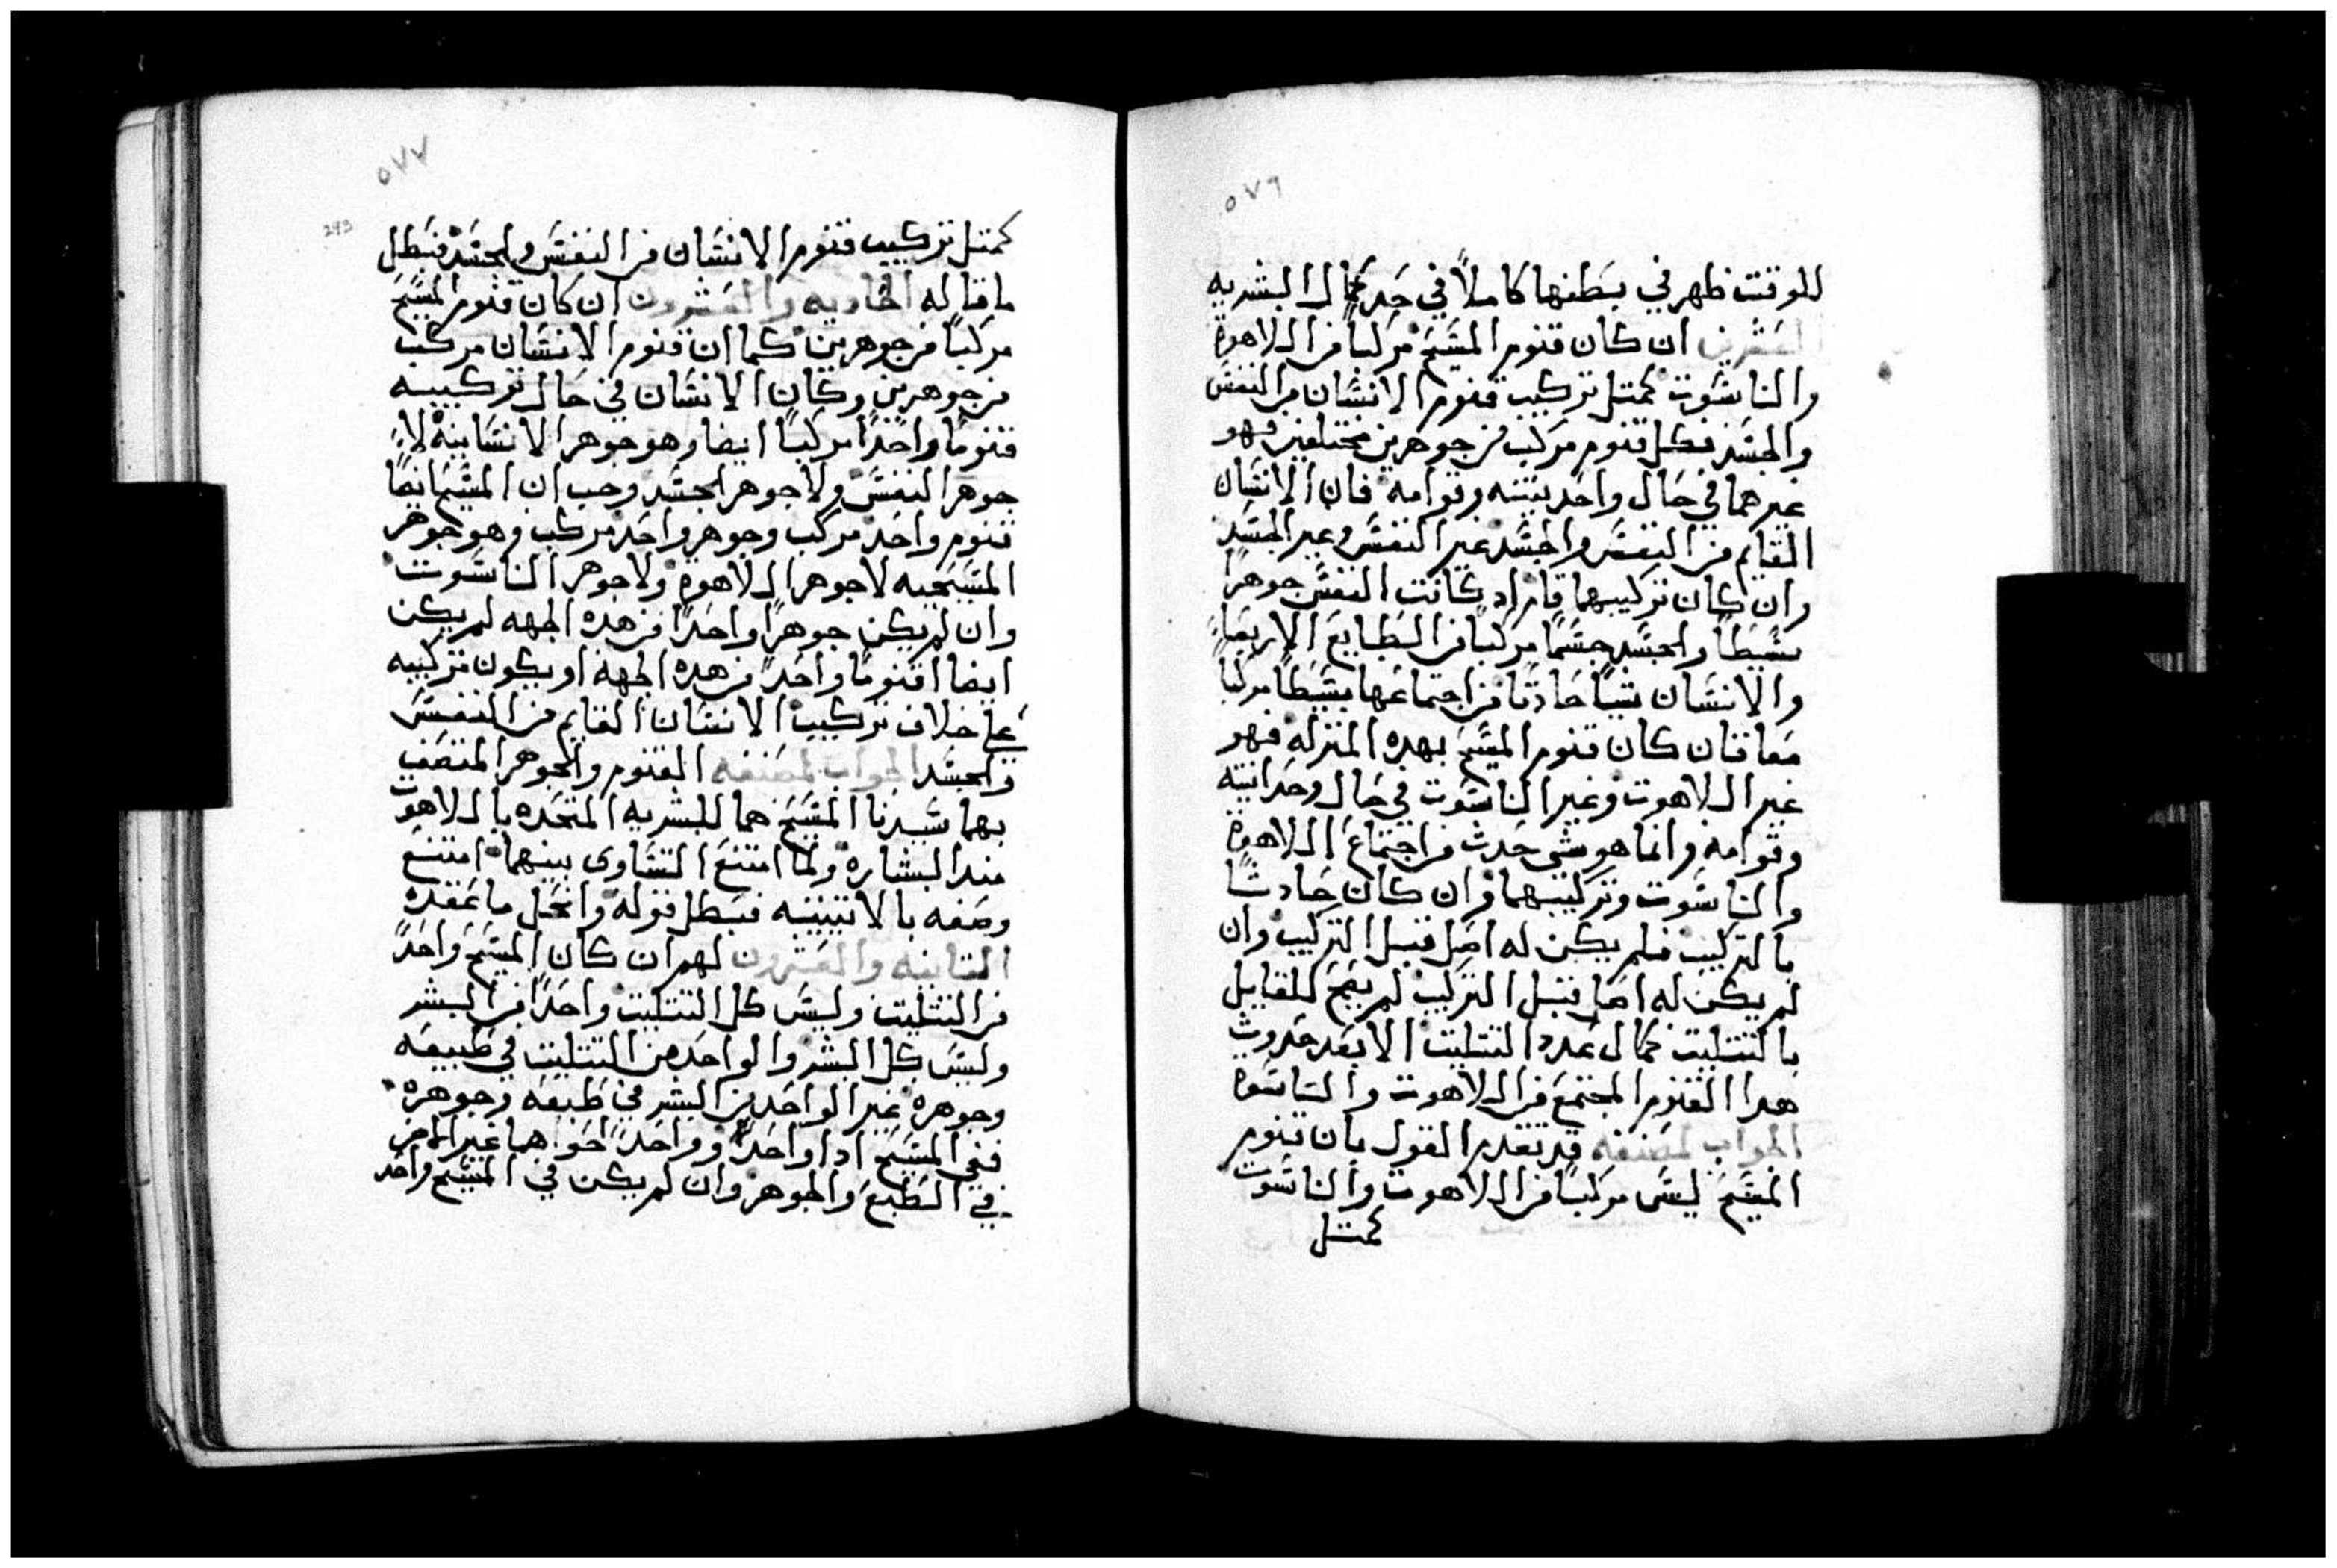 ٥٧٦
للوقت ظهر في بطنها كاملاً في حد كمال البشريه
العشرين ان كان قنوم المسيح مركباً من اللاهوة
والناسوت كمتل تركيب قنوم الانسان من النفس
والجسد فكل قنوم مركب من جوهرين مختلفين فهو
غيرهما في حال واحديتته وقوامه فان الانسان
القايم من النفس والجسد غير النفس وغير الجسد
وان كان تركيبهما قايماً اد كانت النفس جوهراً
بسيطاً والجسد جسماً مركباً من الطبايع الاربعا
والانسان شياً حادتاً من اجتماعها بسيطاً مركباً
معاً فان كان قنوم المسيح بهده المنزله فهو
غير اللاهوت وغير الناسوت في حال وحدانيته
وقوامه وانما هو شي حدث من اجتماع اللاهوة
والناسوت وتركيبهما وان كان حادثاً
بالتركيب فلم يكن له اصل قبل التركيب وان
لم يكن له اصل قبل التركيب لم يصح للقايل
بالتتليت كمال عدد التتليت الا بعد حدوث
هدا القنوم المجتمع من اللاهوت والناسوة
الجواب لمصنفه قد تقدم القول بان قنوم
المسيح ليس مركباً من اللاهوت والناسوت
كمتل
٥٧٧
293
كمتل تركيب قنوم الانسان من النفس والجسد فبطل
ما قاله الحاديه والعشرون ان كان قنوم المسيح
مركباً من جوهرين كما ان قنوم الانسان مركب
من جوهرين وكان الانسان في حال تركيبه
قنوماً واحداً مركباً ايضا وهو جوهر الانسانية لا
جوهر النفس ولا جوهر الجسد وجب ان المسيح ايضاً
قنوم واحد مركب وجوهر واحد مركب وهو جوهر
المسيحيه لا جوهر اللاهوة ولا جوهر الناسوت
وان لم يكن جوهراً واحداً من هده الجهه لم يكن
ايضا اقنوماً واحداً من هده الجهه او يكون تركيبه
على خلاف تركيب الانسان القايم من النفس
والجسد الجواب لمصنفه القنوم والجوهر المتصف
بهما سيدنا المسيح هما للبشريه المتحده باللاهوت
مند البشاره ولما امتنع التساوى بينهما امتنع
وصفه بالاتنينيه فبطل قوله وانحل ما عقده
التانيه والعشرون لهم ان كان المسيح واحداً
من التتليت وليس كل التتليت واحداً من البشر
وليس كل البشر والواحد من التتليت في طبيعه
وجوهره غير الواحد من البشر في طبعه وجوهره
ففي المسيح ادا واحداً وواحداً هما غير
في الطبع والجوهر وان لم يكن في المسيح واحد